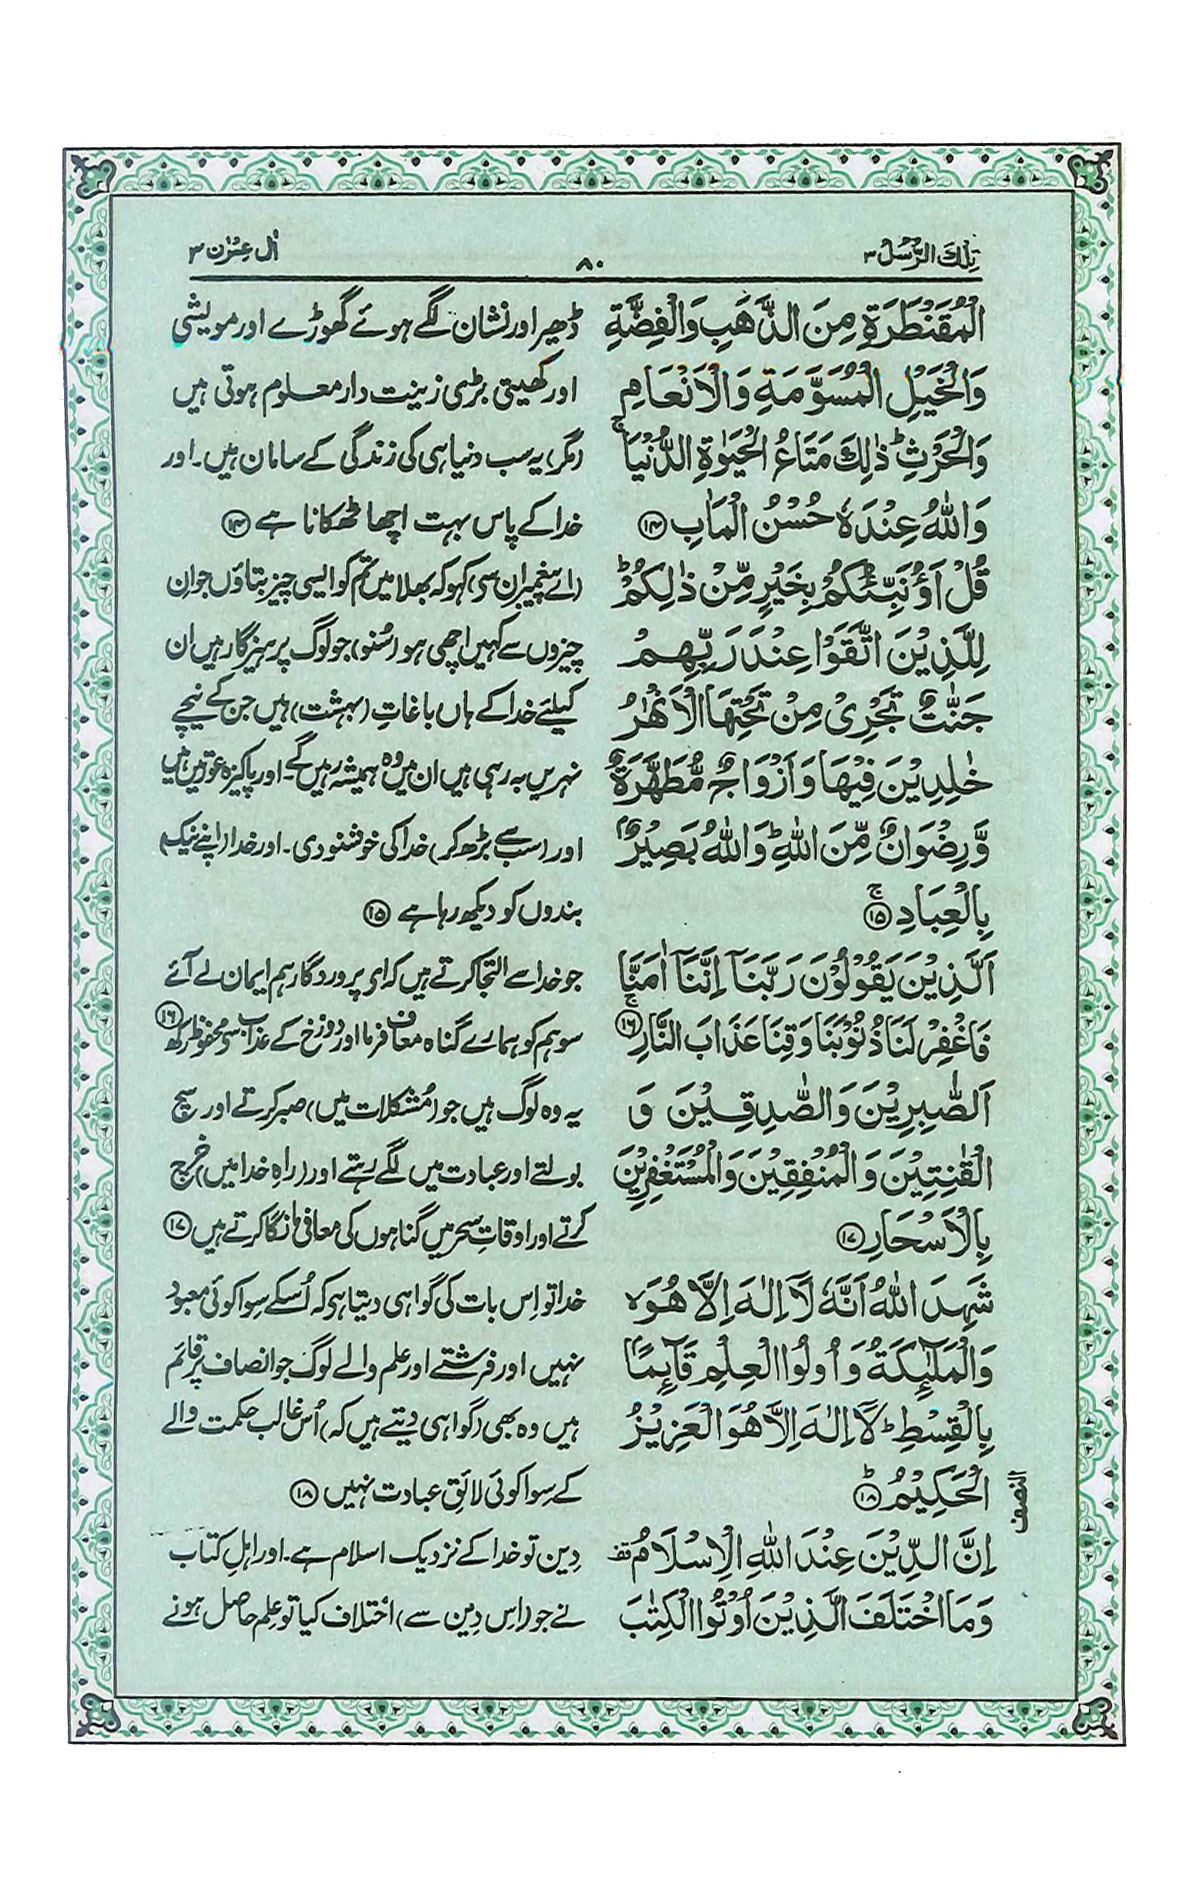 تِلْكَ الرُّسُلُ ٣
٨٠
اٰلِ عِمْرٰن ٣
الْمُقَنْطَرَةِ مِنَ الذَّهَبِ وَالْفِضَّةِ
وَالْخَيْلِ الْمُسَوَّمَةِ وَالْاَنْعَامِ
وَالْحَرْثِ ؕ ذٰلِكَ مَتَاعُ الْحَيٰوةِ الدُّنْيَا ۚ
وَاللّٰهُ عِنْدَهٗ حُسْنُ الْمَاٰبِ ۝۱۴
قُلْ اَؤُنَبِّئُكُمْ بِخَيْرٍ مِّنْ ذٰلِكُمْ ؕ
لِلَّذِيْنَ اتَّقَوْا عِنْدَ رَبِّهِمْ
جَنّٰتٌ تَجْرِيْ مِنْ تَحْتِهَا الْاَنْهٰرُ
خٰلِدِيْنَ فِيْهَا وَاَزْوَاجٌ مُّطَهَّرَةٌ
وَّرِضْوَانٌ مِّنَ اللّٰهِ ؕ وَاللّٰهُ بَصِيْرٌۢ
بِالْعِبَادِ ۝۱۵ ۚ
اَلَّذِيْنَ يَقُوْلُوْنَ رَبَّنَاۤ اِنَّنَاۤ اٰمَنَّا
فَاغْفِرْ لَنَا ذُنُوْبَنَا وَقِنَا عَذَابَ النَّارِ ۝۱۶ ۚ
اَلصّٰبِرِيْنَ وَالصّٰدِقِيْنَ وَ
الْقٰنِتِيْنَ وَالْمُنْفِقِيْنَ وَالْمُسْتَغْفِرِيْنَ
بِالْاَسْحَارِ ۝۱۷
شَهِدَ اللّٰهُ اَنَّهٗ لَاۤ اِلٰهَ اِلَّا هُوَ ۙ
وَالْمَلٰٓئِكَةُ وَاُولُوا الْعِلْمِ قَآئِمًاۢ
بِالْقِسْطِ ؕ لَاۤ اِلٰهَ اِلَّا هُوَ الْعَزِيْزُ
الْحَكِيْمُ ۝۱۸ ؕ
اِنَّ الدِّيْنَ عِنْدَ اللّٰهِ الْاِسْلَامُ ۫ قف
وَمَا اخْتَلَفَ الَّذِيْنَ اُوْتُوا الْكِتٰبَ
النصف
ڈھیر اور نشان لگے ہوئے گھوڑے اور مویشی
اور کھیتی بڑی زینت دار معلوم ہوتی ہیں
(مگر) یہ سب دنیا ہی کی زندگی کے سامان ہیں۔ اور
خدا کے پاس بہت اچھا ٹھکانا ہے ۱۴
(اے پیغمبر ان سے) کہو کہ بھلا میں تم کو ایسی چیز بتاؤں جو اِن
چیزوں سے کہیں اچھی ہو (سُنو) جو لوگ پرہیزگار ہیں ان
کیلئے خدا کے ہاں باغاتِ (بہشت) ہیں جن کے نیچے
نہریں بہ رہی ہیں ان میں وہ ہمیشہ رہیں گے۔ اور پاکیزہ عورتیں ہیں
اور (سب سے بڑھ کر) خدا کی خوشنودی۔ اور خدا (اپنے نیک)
بندوں کو دیکھ رہا ہے ۱۵
جو خدا سے التجا کرتے ہیں کہ اے پروردگار ہم ایمان لے آئے
سو ہم کو ہمارے گناہ معاف فرما اور دوزخ کے عذاب سے محفوظ رکھ ۱۶
یہ وہ لوگ ہیں جو (مُشکلات میں) صبر کرتے اور سچ
بولتے اور عبادت میں لگے رہتے اور (راہِ خدا میں) خرچ
کرتے اور اوقاتِ سحر میں گناہوں کی معافی مانگا کرتے ہیں ۱۷
خدا تو اِس بات کی گواہی دیتا ہے کہ اُس کے سوا کوئی معبود
نہیں اور فرشتے اور علم والے لوگ جو انصاف پر قائم
ہیں وہ بھی (گواہی دیتے ہیں کہ) اُس غالب حکمت والے
کے سِوا کوئی لائقِ عبادت نہیں ۱۸
دِین تو خدا کے نزدیک اسلام ہے۔ اور اہلِ کتاب
نے جو (اس دِین سے) اختلاف کیا تو علم حاصل ہونے